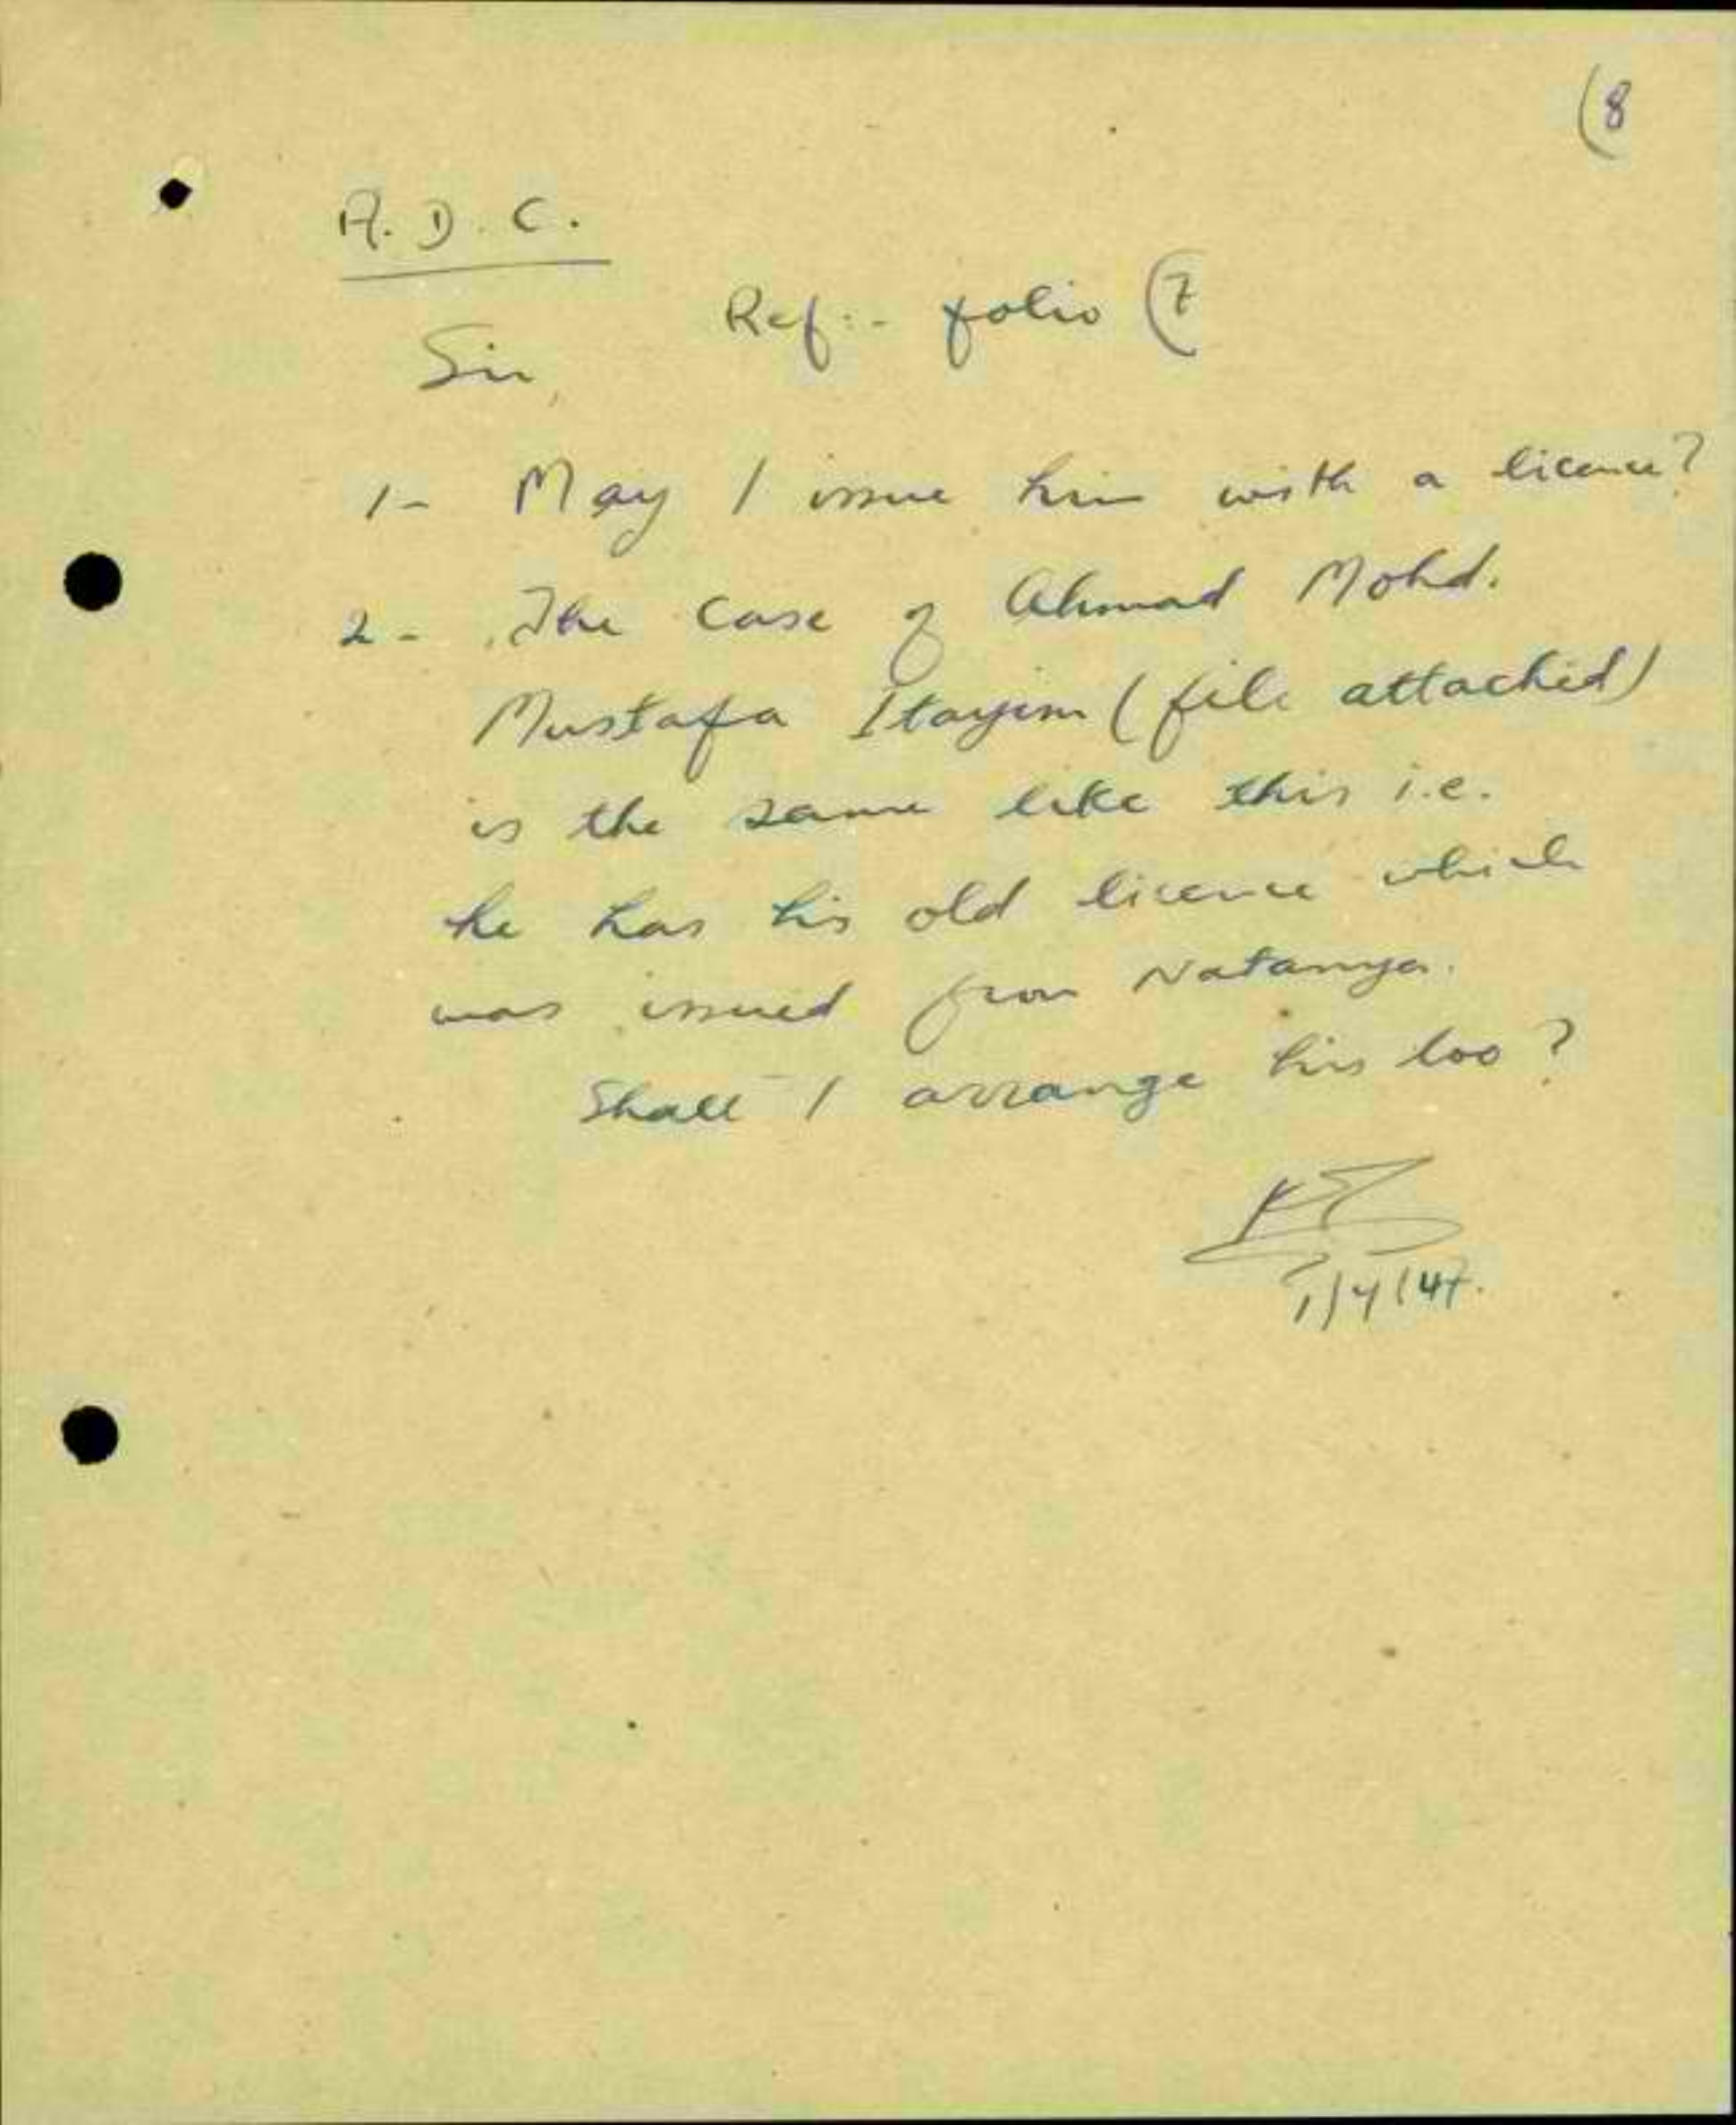 (8
A. D. C.
Ref:- folio (7
Sir,
1- May I issue him with a licence?
2- The case of Ahmad Mohd.
Mustafa Itayim (file attached)
is the same like this i.e.
he has his old licence which
was issued from Natanya.
Shall I arrange his too?
1/4/47.